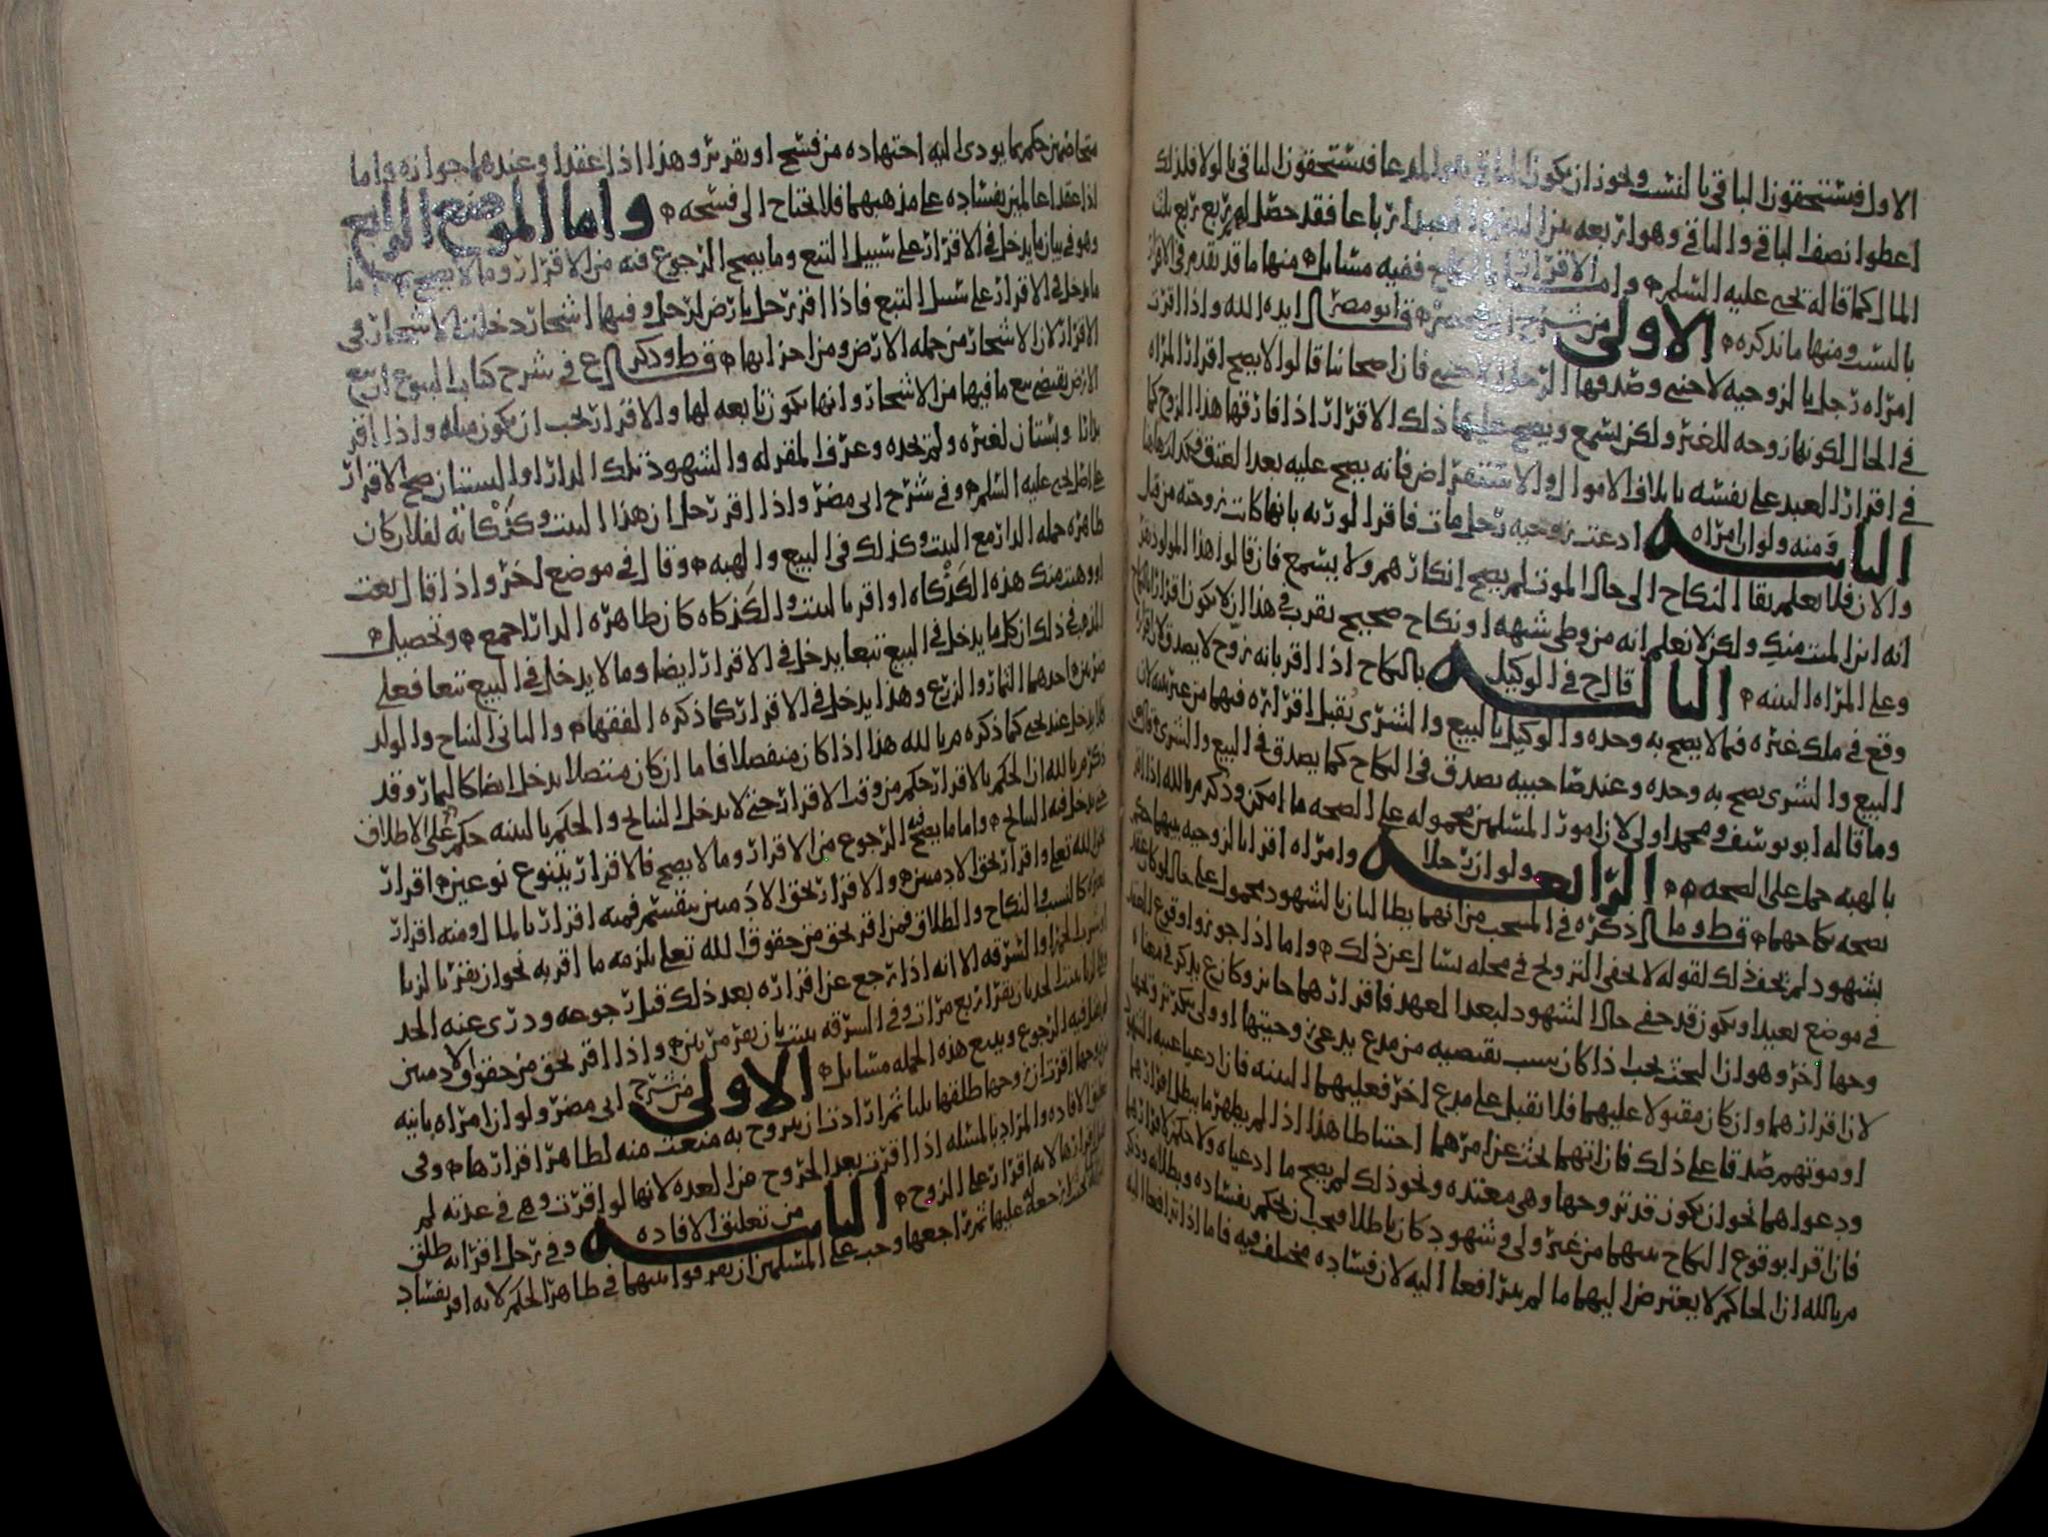 الاول فيستحقون الباقي بالنسب ويجوز ان يكون الباقي هو المدعا فيستحقون الباقي بالولا فلذلك
اعطوا نصف الباقي والباقي وهو اربعه بين ارباعا فقد حصل لهم ربع ربع ذلك
المال كما قاله يحيى عليه السلم واما الاقرار بالنكاح ففيه مسايل منها ما قد تقدم في الاقرار
بالنسب ومنها ما نذكره الاولى من شرح ابي مضر قال ابو مضر ايده الله واذا اقرت
امراه رجل بالزوجيه لاجنبي وصدقها الرجل الاجنبي فان اصحابنا قالوا لا يصح اقرار المراه
في الحال لكونها زوجه للغير ولكن يسمع ويصح عليها ذلك الاقرار اذا فارقها هذا الزوج كما
في اقرار العبد على نفسه باتلاف الاموال والاستقراض فانه يصح عليه بعد العتق فكذلك هاهنا
الثانيه ومنه ولو ان امراه ادعت زوجيه رجل مات فاقر الورثه بانها كانت زوجته من قبل
والان فلا يعلم بقا النكاح الى حال الموت لم يصح انكارهم ولا يسمع فان قالوا هذا المولود نقر
انه ابن الميت منك ولكن لا نعلم انه من وطي شبهه او نكاح صحيح يقرب في هذا ان لا يكون اقرارا بالنكاح
وعلى المراه البينه الثالثه قال ح في الوكيل بالنكاح اذا اقر بانه زوج لا يصدق لان اقراره
وقع في ملك غيره فيما لا يصح به وحده والوكيل بالبيع والشرى يقبل اقراره فيهما من غير بينه لان
البيع والشرى يصح به وحده وعند صاحبيه يصدق في النكاح كما يصدق في البيع والشرى
وما قاله ابو يوسف ومحمد اولى لان امور المسلمين محموله على الصحه ما امكن وذكر م بالله اذا اقر
بالهبه حمل على الصحه الرابعه ولو ان رجلا وامراه اقرا بالزوجيه بينهما حكم
بصحه نكاحهما قال ط وما ذكره في المنتخب من انهما يطالبان بالشهود محمول على حال لو كان عقد
بشهود لم يخف ذلك لقوله لا يخفى التزويج في محله يسال عن ذلك واما اذا جوزوا وقوع العقد
في موضع بعيد او يكون قد خفي حال الشهود لبعد العهد فاقرارهما جايز وكان ع يذكر في معناه
وجها اخر وهو ان البحث يجب اذا كان بسبب يقتضيه من مدع يدعي زوجيتها او ولي ينكر تزويجها
لان اقرارهما وان كان مقبولا عليهما فلا تقبل على مدع اخر فعليهما البينه فان ادعيا غيبه الشهود
او موتهم صدقا على ذلك فان اتهما بحث عن امرهما احتياطا هذا اذا لم يظهر ما يبطل اقرارهما
ودعواهما نحو ان يكون قد تزوجها وهي معتده ونحو ذلك لم يصح ما ادعياه ولا حكم لاقرارهما
فان اقرا بوقوع النكاح بينهما من غير ولي وشهود كان باطلا ويجب ان يحكم بفساده وبطلانه وذكر
م بالله ان الحاكم لا يعترض اليهما ما لم يترافعا اليه لان فساده مختلف فيه فاما اذا ترافعا اليه
متخاصمين حكم بما يودي اليه اجتهاده من فسخ او تقرير وهذا اذا عقدا وعندهما جوازه واما
اذا عقدا عالمين بفساده على مذهبهما فلا يحتاج الى فسخه واما الموضع الرابع
وهو في بيان ما يدخل في الاقرار على سبيل التبع وما يصح الرجوع فيه من الاقرار وما لا يصح اما
ما يدخل في الاقرار على سبيل التبع فاذا اقر رجل بارض لرجل وفيها اشجار دخلت الاشجار في
الاقرار لان الاشجار من جمله الارض ومن اجزايها قال ط وذكر ع في شرح كتاب البيوع ان بيع
الارض يقتضي بيع ما فيها من الاشجار وانها تكون تابعه لها والاقرار يجب ان يكون مثله واذا اقر
بدار او بستان لغيره ولم يحده وعرف المقر له والشهود تلك الدار او البستان صح الاقرار
على اصل يحيى عليه السلم وفي شرح ابي مضر واذا اقر رجل ان هذا البيت وكذكانه لفلان كان
ظاهره جمله الدار مع البيت وكذلك في البيع والهبه وقال في موضع اخر واذا قال بعت
او وهبت منك هذه الكذكاه او اقر بالبيت والكذكاه كان ظاهره الدار اجمع وتحصيل
المذهب في ذلك ان كل ما يدخل في البيع تبعا يدخل في الاقرار ايضا وما لا يدخل في البيع تبعا فعلى
ضربين احدهما الثمار والزرع وهذا يدخل في الاقرار كما ذكره الفقها والثاني النتاج والولد
فلا يدخل عند يحيى كما ذكره م بالله هذا اذا كان منفصلا فاما ان كان متصلا يدخل ايضا كالثمار وقد
ذكر م بالله ان الحكم بالاقرار حكم من وقت الاقرار حتى لا يدخل النتاج والحكم بالبينه حكم على الاطلاق
حتى يدخل فيه النتاج واما ما يصح فيه الرجوع من الاقرار وما لا يصح فالاقرار يتنوع نوعين اقرار
بحق الله تعلى واقرار بحق الادميين والاقرار بحق الادميين ينقسم فمنه اقرار بالمال ومنه اقرار
بغيره كالنسب والنكاح والطلاق فمن اقر بحق من حقوق الله تعلى يلزمه ما اقر به نحو ان يقر بالزنا
او شرب الخمر او السرقه الا انه اذا رجع عن اقراره بعد ذلك قبل رجوعه ودري عنه الحد
وفي الزنا يثبت الحد بان يقر اربع مرات وفي السرقه يثبت بان يقر مرتين واذا اقر بحق من حقوق الادميين
لم يقبل فيه الرجوع ويتبع هذه الجمله مسايل الاولى من شرح ابي مضر ولو ان امراه باينه
من زوجها اقرت ان زوجها طلقها ثلثا ثم ارادت ان تتزوج به منعت منه لظاهر اقرارها وفي
تعليق الافاده والمراد بالمسله اذا اقرت بعد الخروج من العده لانها لو اقرت وهي في عدته لم
يقبل اقرارها لانه اقرار على الزوج الثانيه من تعليق الافاده وفي رجل اقر انه طلق
رجعه عليها ثم راجعها وجب على المسلمين ان يفرقوا بينهما في ظاهر الحكم لانه اقر بفساد